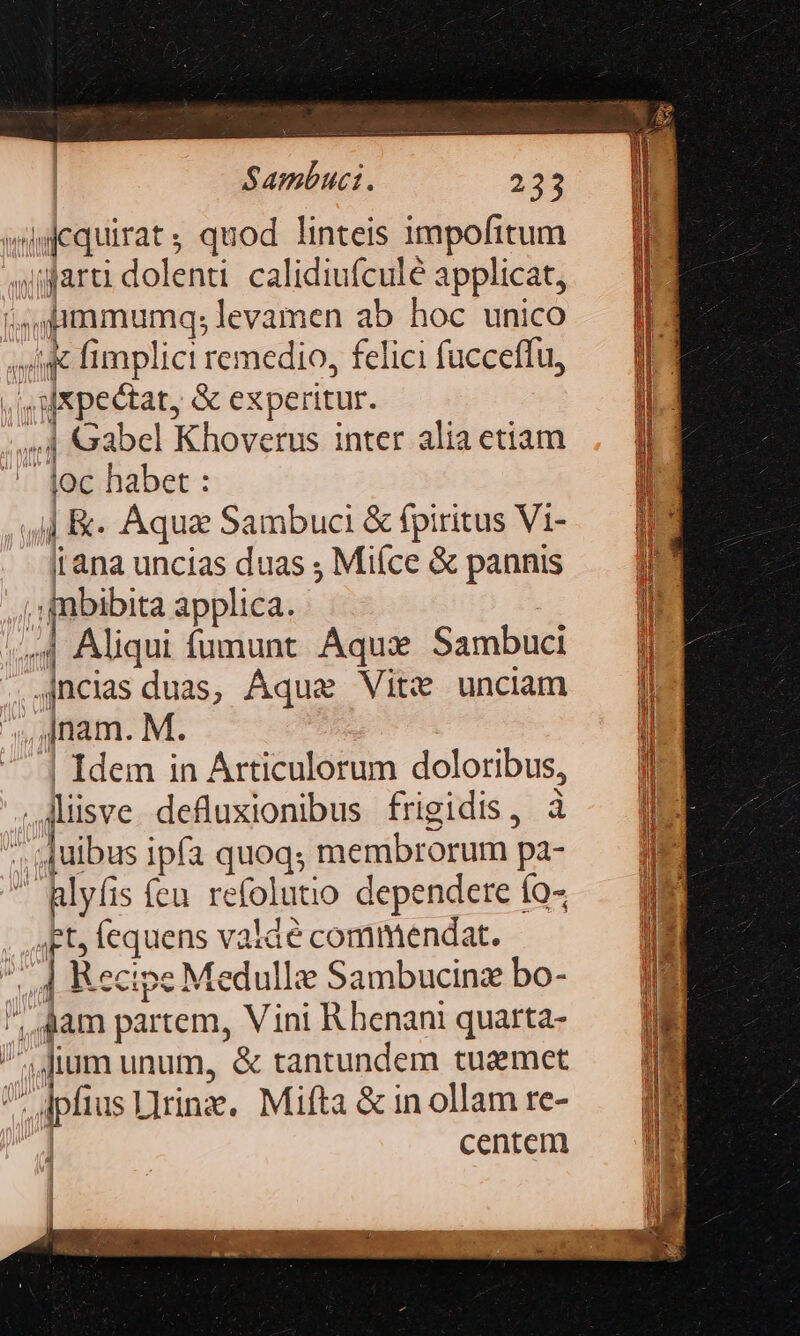 Sambuci. 233
cquirat; quod linteis impoſitum
arti dolenti calidiuſculè applicat,
mmumq; levamen ab hoc unico
ſimplici remedio, felici ſucceſſu,
xpectat, & experitur.
Gabel Khoverus inter alia etiam
oc habet :
℞. Aquæ Sambuci & ſpiritus Vi-
i ana uncias duas; Miſce & pannis
mbibita applica.
Aliqui ſumunt Aquæ Sambuci
ncias duas, Aquæ Vitæ unciam
nam. M.
Idem in Articulorum doloribus,
liisve defluxionibus frigidis, à
uibus ipſa quoq; membrorum pa-
alyſis ſeu reſolutio dependere ſo-
et, ſequens valdè commendat.
Recipe Medullæ Sambucinæ bo-
am partem, Vini Rhenani quarta-
ium unum, & tantundem tuæmet
ipſius Urinæ. Miſta & in ollam re-
centem